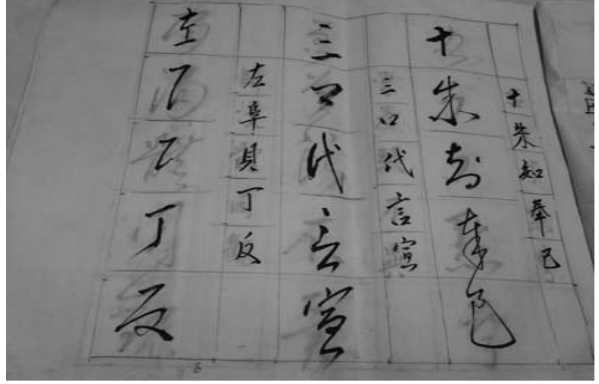 十朱知奉己
十朱知奉己
三口代言宣
三口代言宣
左阜貝丁反
左阜貝丁反
6